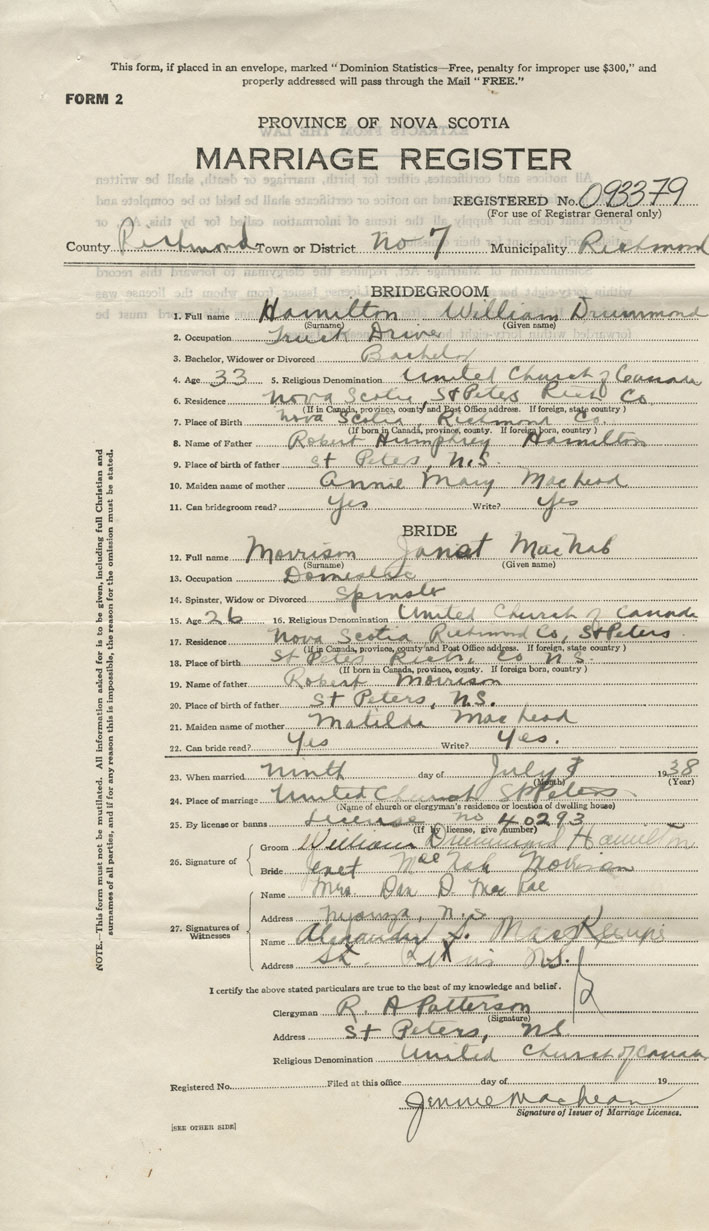 This form, if placed in an envelope, marked "Dominion Statistics—Free, penalty for improper use $300," and
properly addressed will pass through the Mail "FREE."
FORM 2
PROVINCE OF NOVA SCOTIA
MARRIAGE REGISTER
REGISTERED No. 093379
(For use of Registrar General only)
County Richmond Town or District No 7 Municipality Richmond
BRIDEGROOM
1. Full name Hamilton William Drummond
(Surname) (Given name)
2. Occupation Truck Driver
3. Bachelor, Widower or Divorced Bachelor
4. Age 33 5. Religious Denomination United Church of Canada
6. Residence Nova Scotia, St Peters Rich Co
(If in Canada, province, county and Post Office address. If foreign, state country)
7. Place of Birth Nova Scotia Richmond Co.
(If born in Canada, province, county. If foreign born, country)
8. Name of Father Robert Humphrey Hamilton
9. Place of birth of father St Peters, N.S.
10. Maiden name of mother Annie Mary
11. Can bridegroom read? Yes Write? Yes
BRIDE
12. Full name Morrison Janet MacNab
(Surname) (Given name)
13. Occupation Domestic
14. Spinster, Widow or Divorced Spinster
15. Age 26 16. Religious Denomination United Church of Canada
17. Residence Nova Scotia Richmond Co, St Peters
(If in Canada, province, county and Post Office address. If foreign, state country)
18. Place of birth St Peters Rich, Co N.S.
(If born in Canada, province, county. If foreign born, country)
19. Name of father Robert Morrison
20. Place of birth of father St Peters, N.S.
21. Maiden name of mother Matilda
22. Can bride read? Yes Write? Yes.
23. When married Ninth day of July 1938
(Month) (Year)
24. Place of marriage United Church St Peters
(Name of church or clergyman's residence or location of dwelling house)
25. By license or banns License no 40293
(If by license, give number)
26. Signature of
Groom William Drummond Hamilton
Bride Janet MacNab Morrison
27. Signatures of Witnesses
Name Mrs. Dan D. MacRae
Address Nyanza, N.S.
Name Alexander S. MacKenzie
Address St. Peters N.S.
I certify the above stated particulars are true to the best of my knowledge and belief.
Clergyman R. A Patterson
(Signature)
Address St Peters, NS
Religious Denomination United Church of Canada
Registered No. Filed at this office day of 19
Jennie MacLean
Signature of Issuer of Marriage Licenses.
[SEE OTHER SIDE]
NOTE.—This form must not be mutilated. All information asked for is to be given, including full Christian and
surnames of all parties, and if for any reason this is impossible, the reason for the omission must be stated.